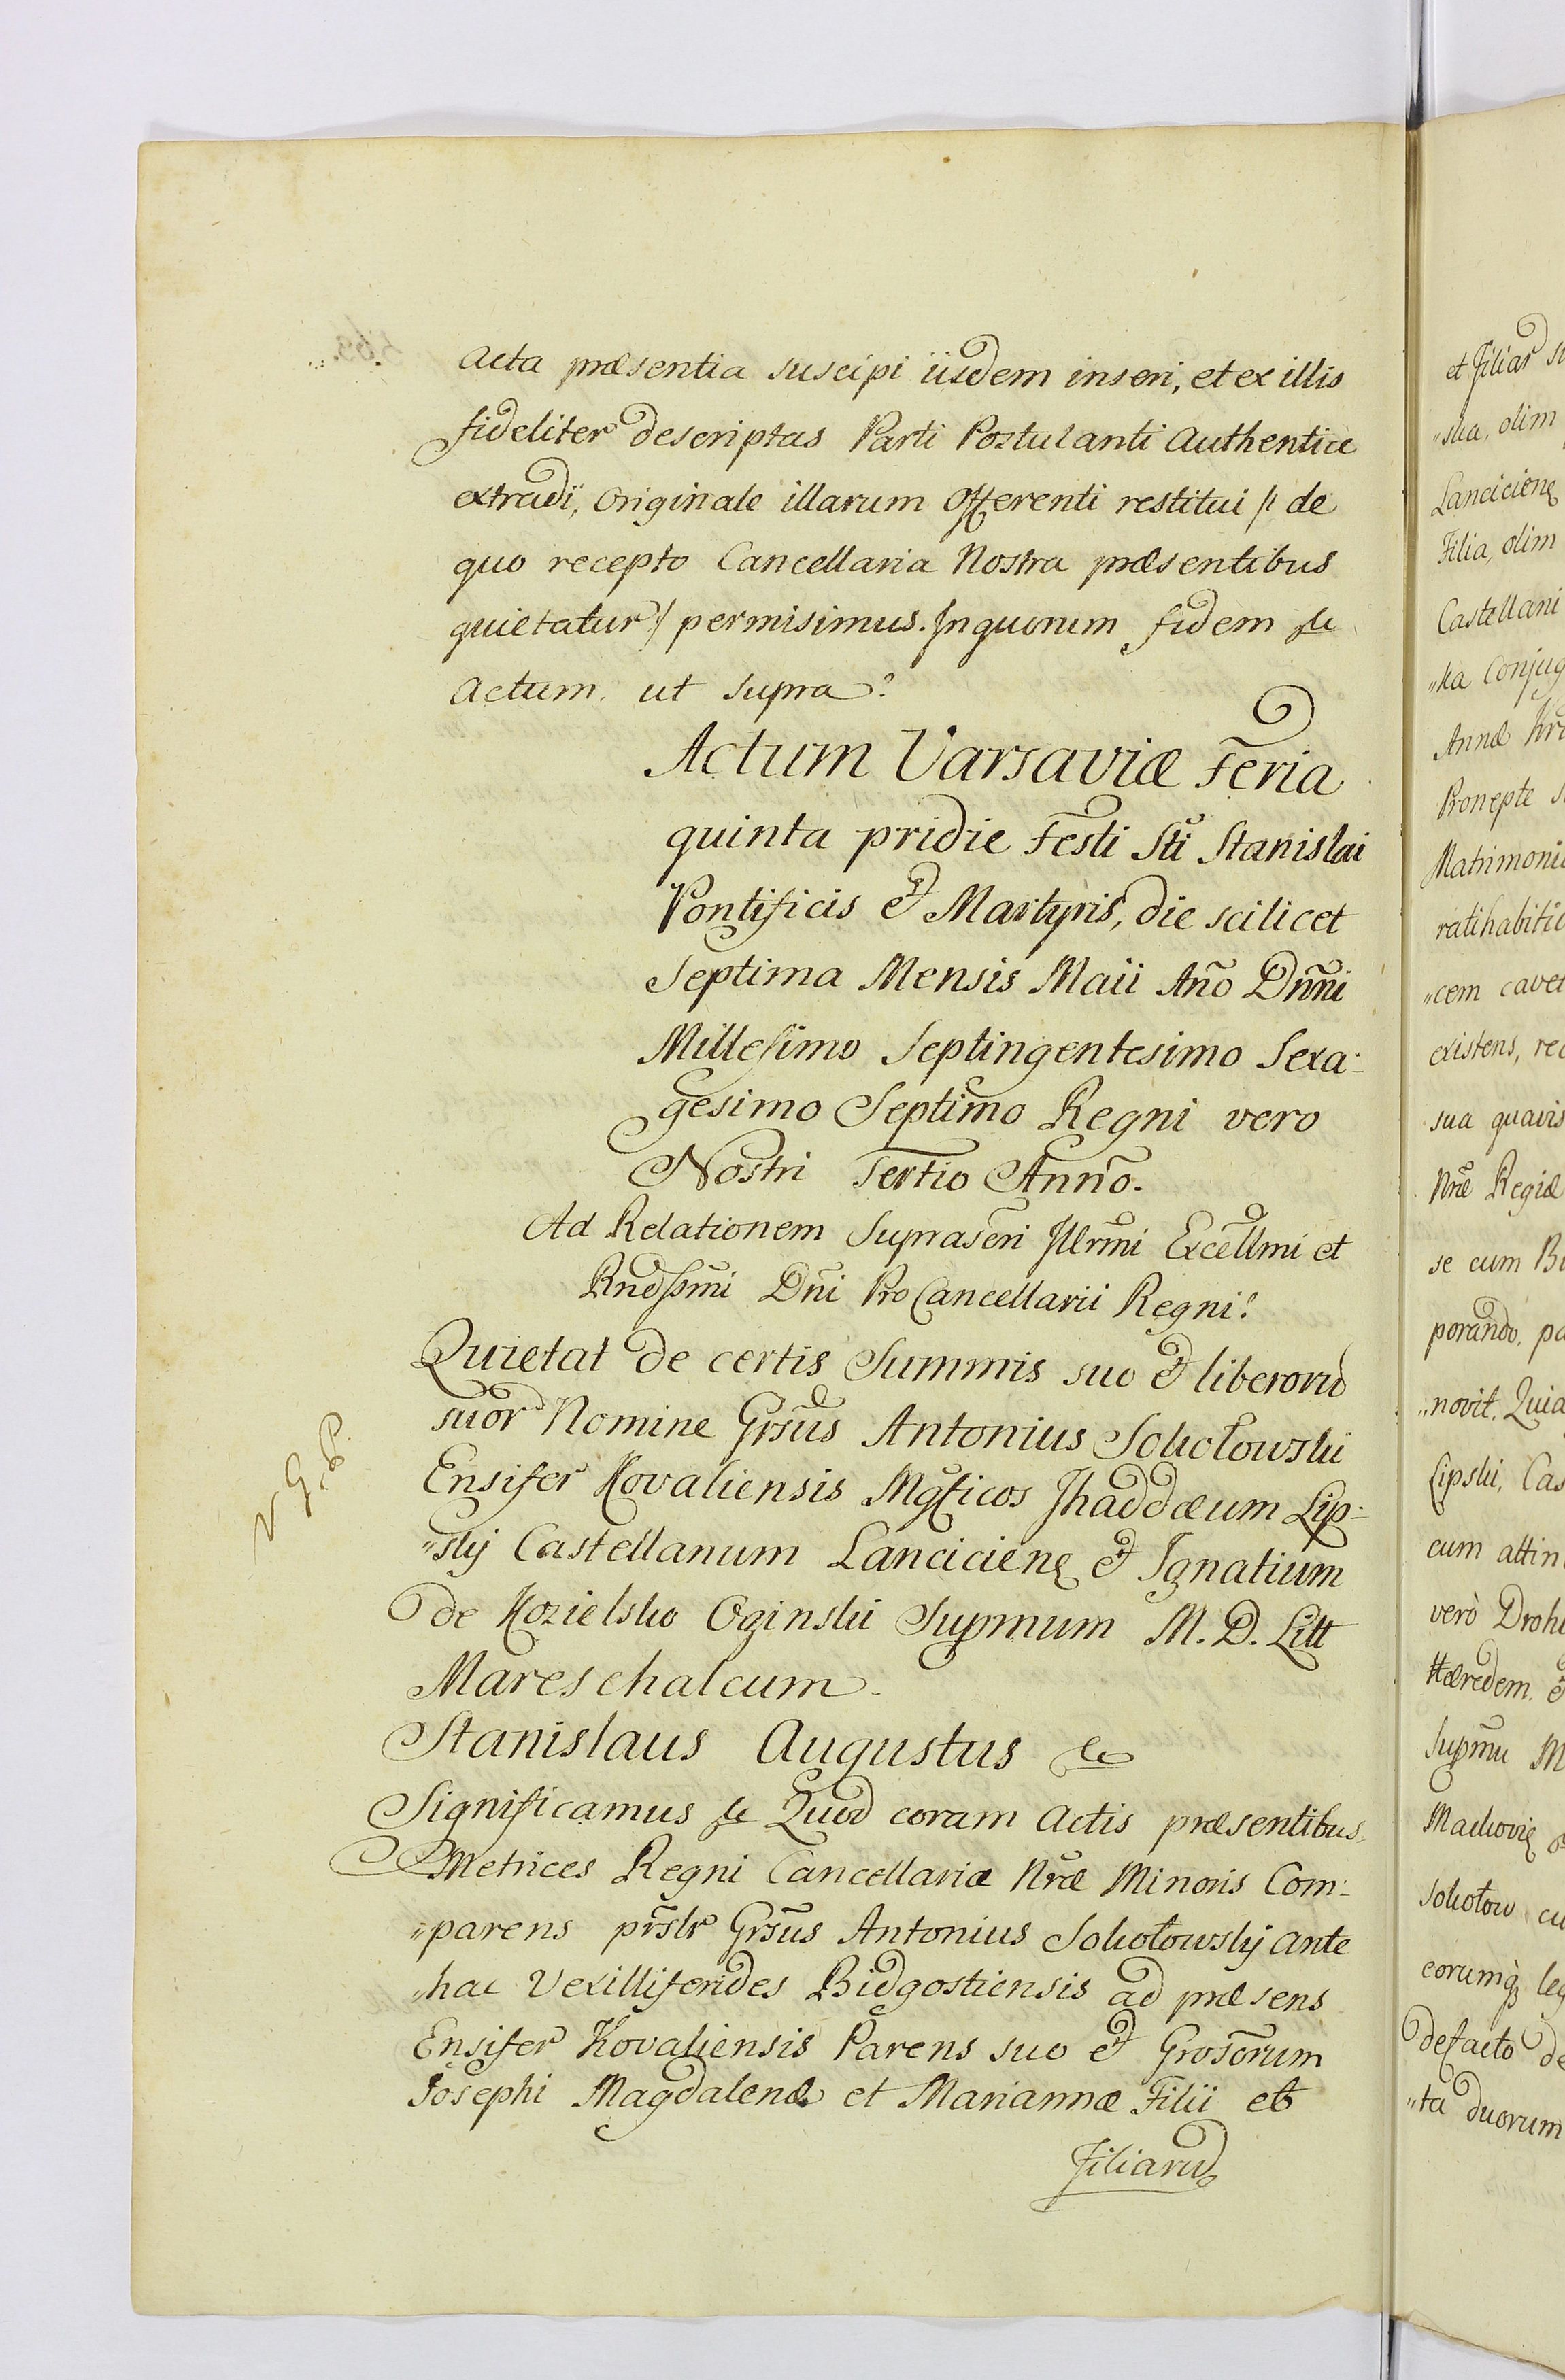 Acta præsentia suscipi iisdem inseri, et ex illis
fideliter descriptas Parti Postulanti Authentice
extradi, Originale illarum Offerenti restitui /: de
quo recepto Cancellaria Nostra præsentibus
quietatur :/ permisimus. In quorum fidem &c
Actum ut supra.
Actum Varsaviæ Feria
quinta pridie Festi Sti Stanislai
Pontificis et Martyris, die scilicet
Septima Mensis Maii Año Dñni
Millesimo Septingentesimo Sexa-
gesimo Septimo Regni vero
Nostri Tertio Anño.
Ad Relationem Suprascri Illrmi Excellmi et
Rndssmi Dni ProCancellarii Regni.
Quietat de certis Summis suo et liberorũ
suor Nomine Grsus Antonius Sokołowski
Ensifer Kovaliensis Mgficos Thaddæum Lip-
"skÿ Castellanum Lancicien et Ignatium
de Kozielsko Oginski Supmum M. D. Litt
Mareschalcum.
Stanislaus Augustus &c
Significamus &c Quod coram Actis præsentibus
Metrices Regni Cancellariæ Nræ Minoris Com-
"parens prslr Grsus Antonius Sokołowskÿ ante
"hac Vexilliferides Bidgostiensis ad præsens
Ensifer Kovaliensis Parens suo et Grosorum
Josephi Magdalenæ et Mariannæ Filii et
Filiarũ
V. G. P.
et Filiar
"ska, olim
Lancicien
Filia, olim
Castellani
"ka Conjug
Annæ
Pronepte
Matrimoni
ratihabitio
"cem cavet
existens, re
sua quavis
Nræ Regiæ
se cum
porando, pa
"novit. Quia
Lipski, Cas
cum attin
verò Droh
Hæredem et
Supmu M
Machovi
Sokołow cu
eorumq leg
defacto de
"ta duorum